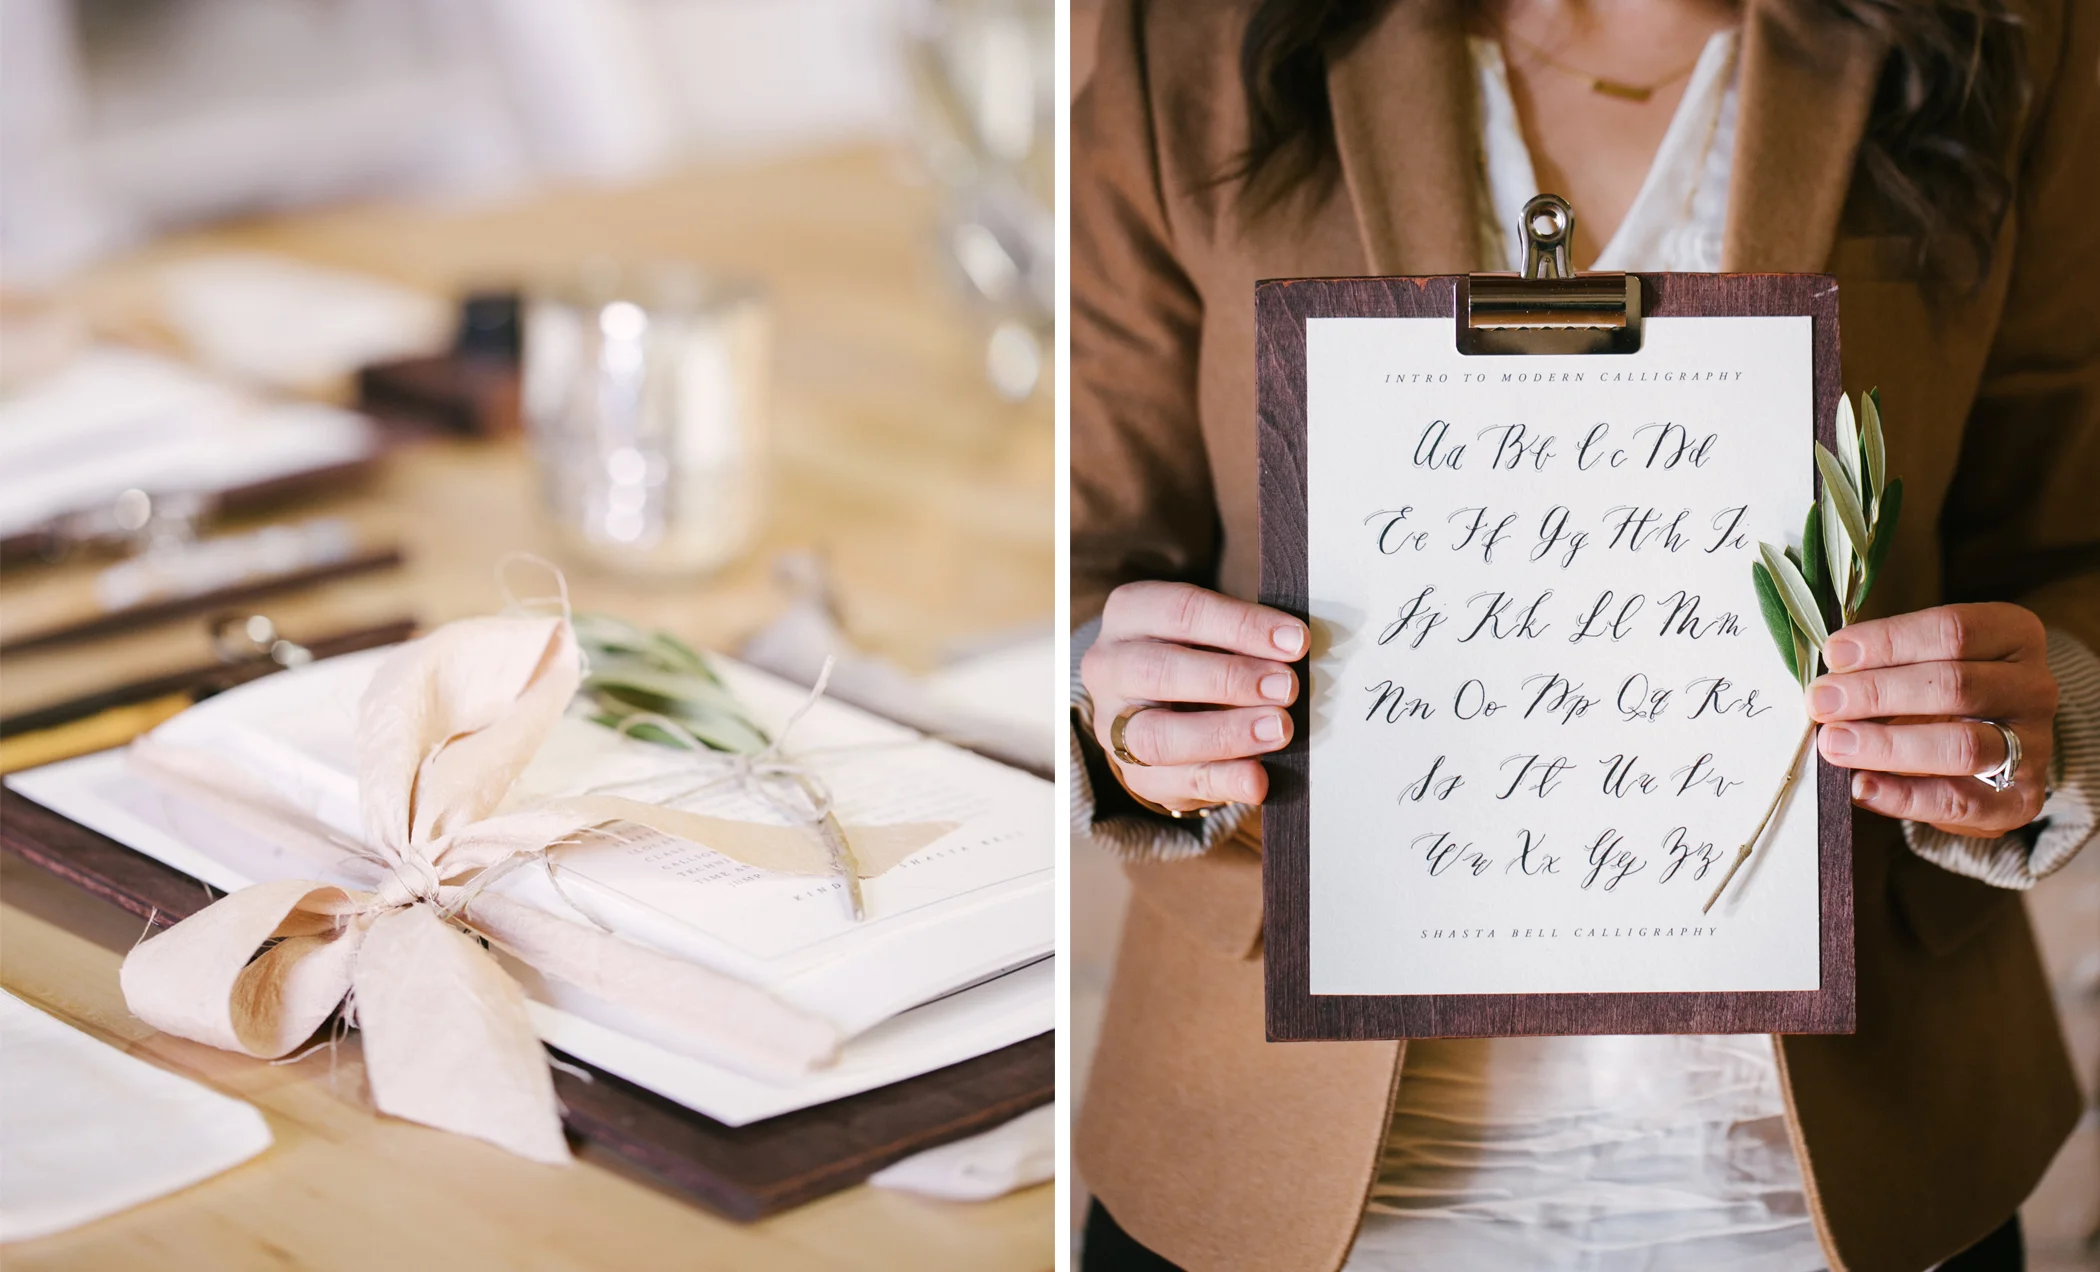 CLASS
TIME A
JUMP
KIND
SHASTA BEL
INTRO TO MODERN CALLIGRAPHY
Aa Bb Cc Dd
Ee Ff Gg Hh Ii
Jj Kk Ll Mm
Nn Oo Pp Qq Rr
Ss Tt Uu Vv
Ww Xx Yy Zz
SHASTA BELL CALLIGRAPHY